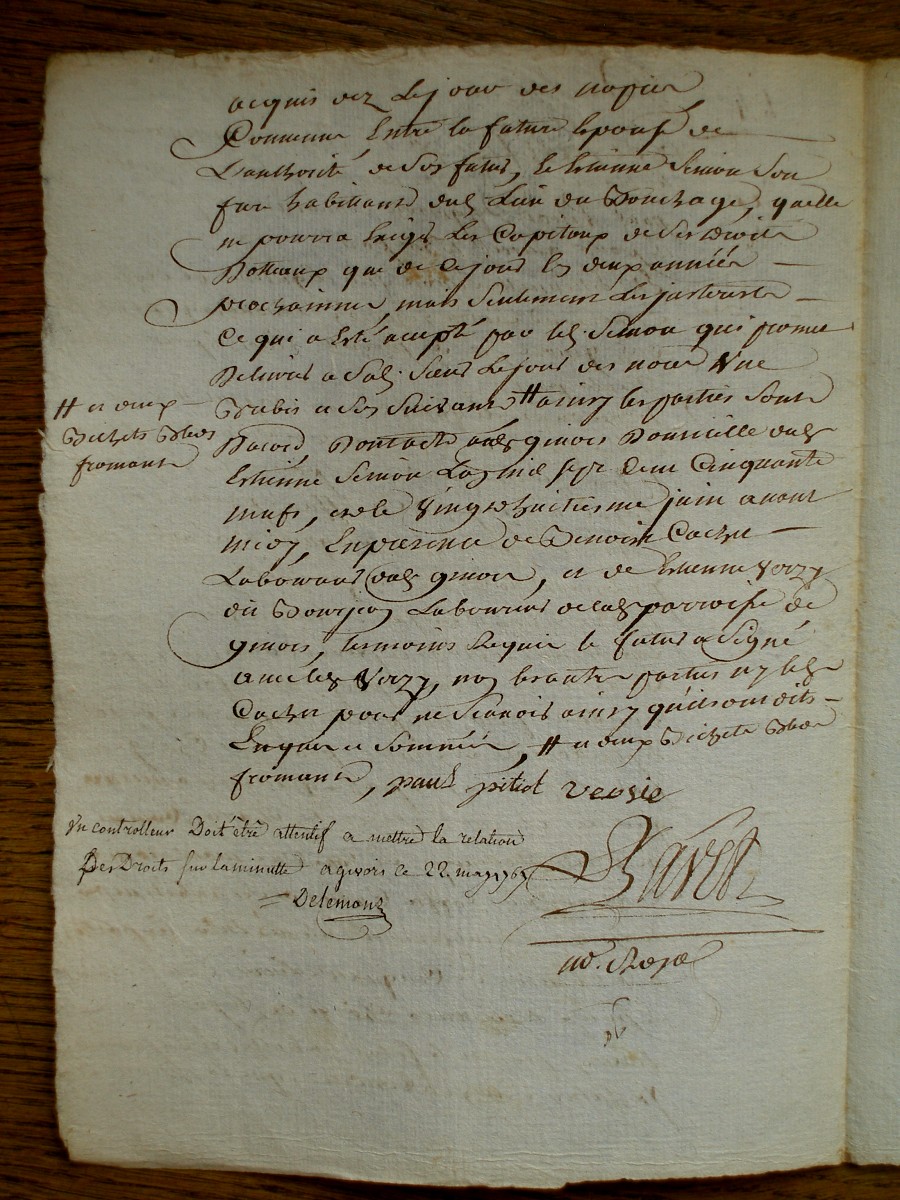 acquis dez le jour des nopces
Convenu Entre la future Epouse de
L'authorité de Son futur, et Estienne Simon Son
frere habittant dud. Lieu du Bouchage, quelle
ne pourra Exiger Les Capitaux de Ses droits
Dottaux que de ce jour En deux années
prochaines, mais Seulement Les
Ce qui a Esté accepté par led. Simon qui promet
Delivrer a Sad. Sœur Le jour des noces Une
Brebis et Son Suivant # ainsy les parties Sont
D'acord, Dont acte aud. Domicille dud.
Estienne Simon L'an mil Sept Cent Cinquante
neuf, et le Vingt huitieme juin avant
midy, En presence de Benoit Cachet
Laboureur dud. , et de Estienne Verzy
dit Laboureur de lad. parroisse de
, temoins Requis le futur a Signé
avec led. Verzy, non les autres parties ny led.
Cachet pour ne Scavoir ainsy qu'ils ont dits
Enquis et Sommés, # et deux Bichets Bled
fromant, paul pitiot versie
# et deux
Bichets Bled
fromant
Un controlleur Doit être attentif a mettre la relation
Des Droits sur la minutte a ce 22 may
Delemont
Ravet